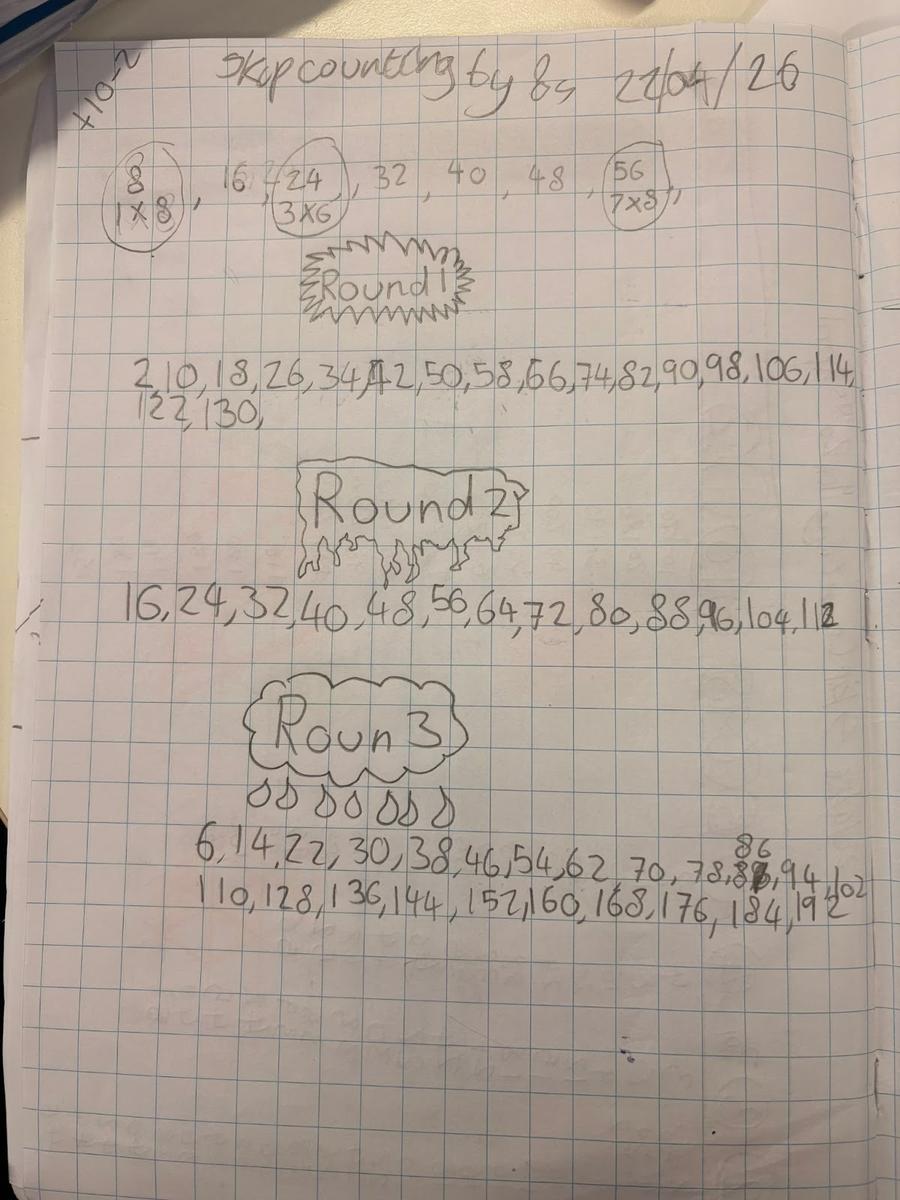 x10-2
Skip counting by 8s 22/04/26
8, 16, 24, 32, 40, 48, 56,
1x8 3x6 7x8
Round 1
2,10,18,26,34,42,50,58,66,74,82,90,98,106,114,
122,130,
Round 2
16,24,32,40,48,56,64,72,80,88,96,104,112
Roun 3
86
6,14,22,30,38,46,54,62,70,78,86,94,102
110,128,136,144,152,160,168,176,184,192